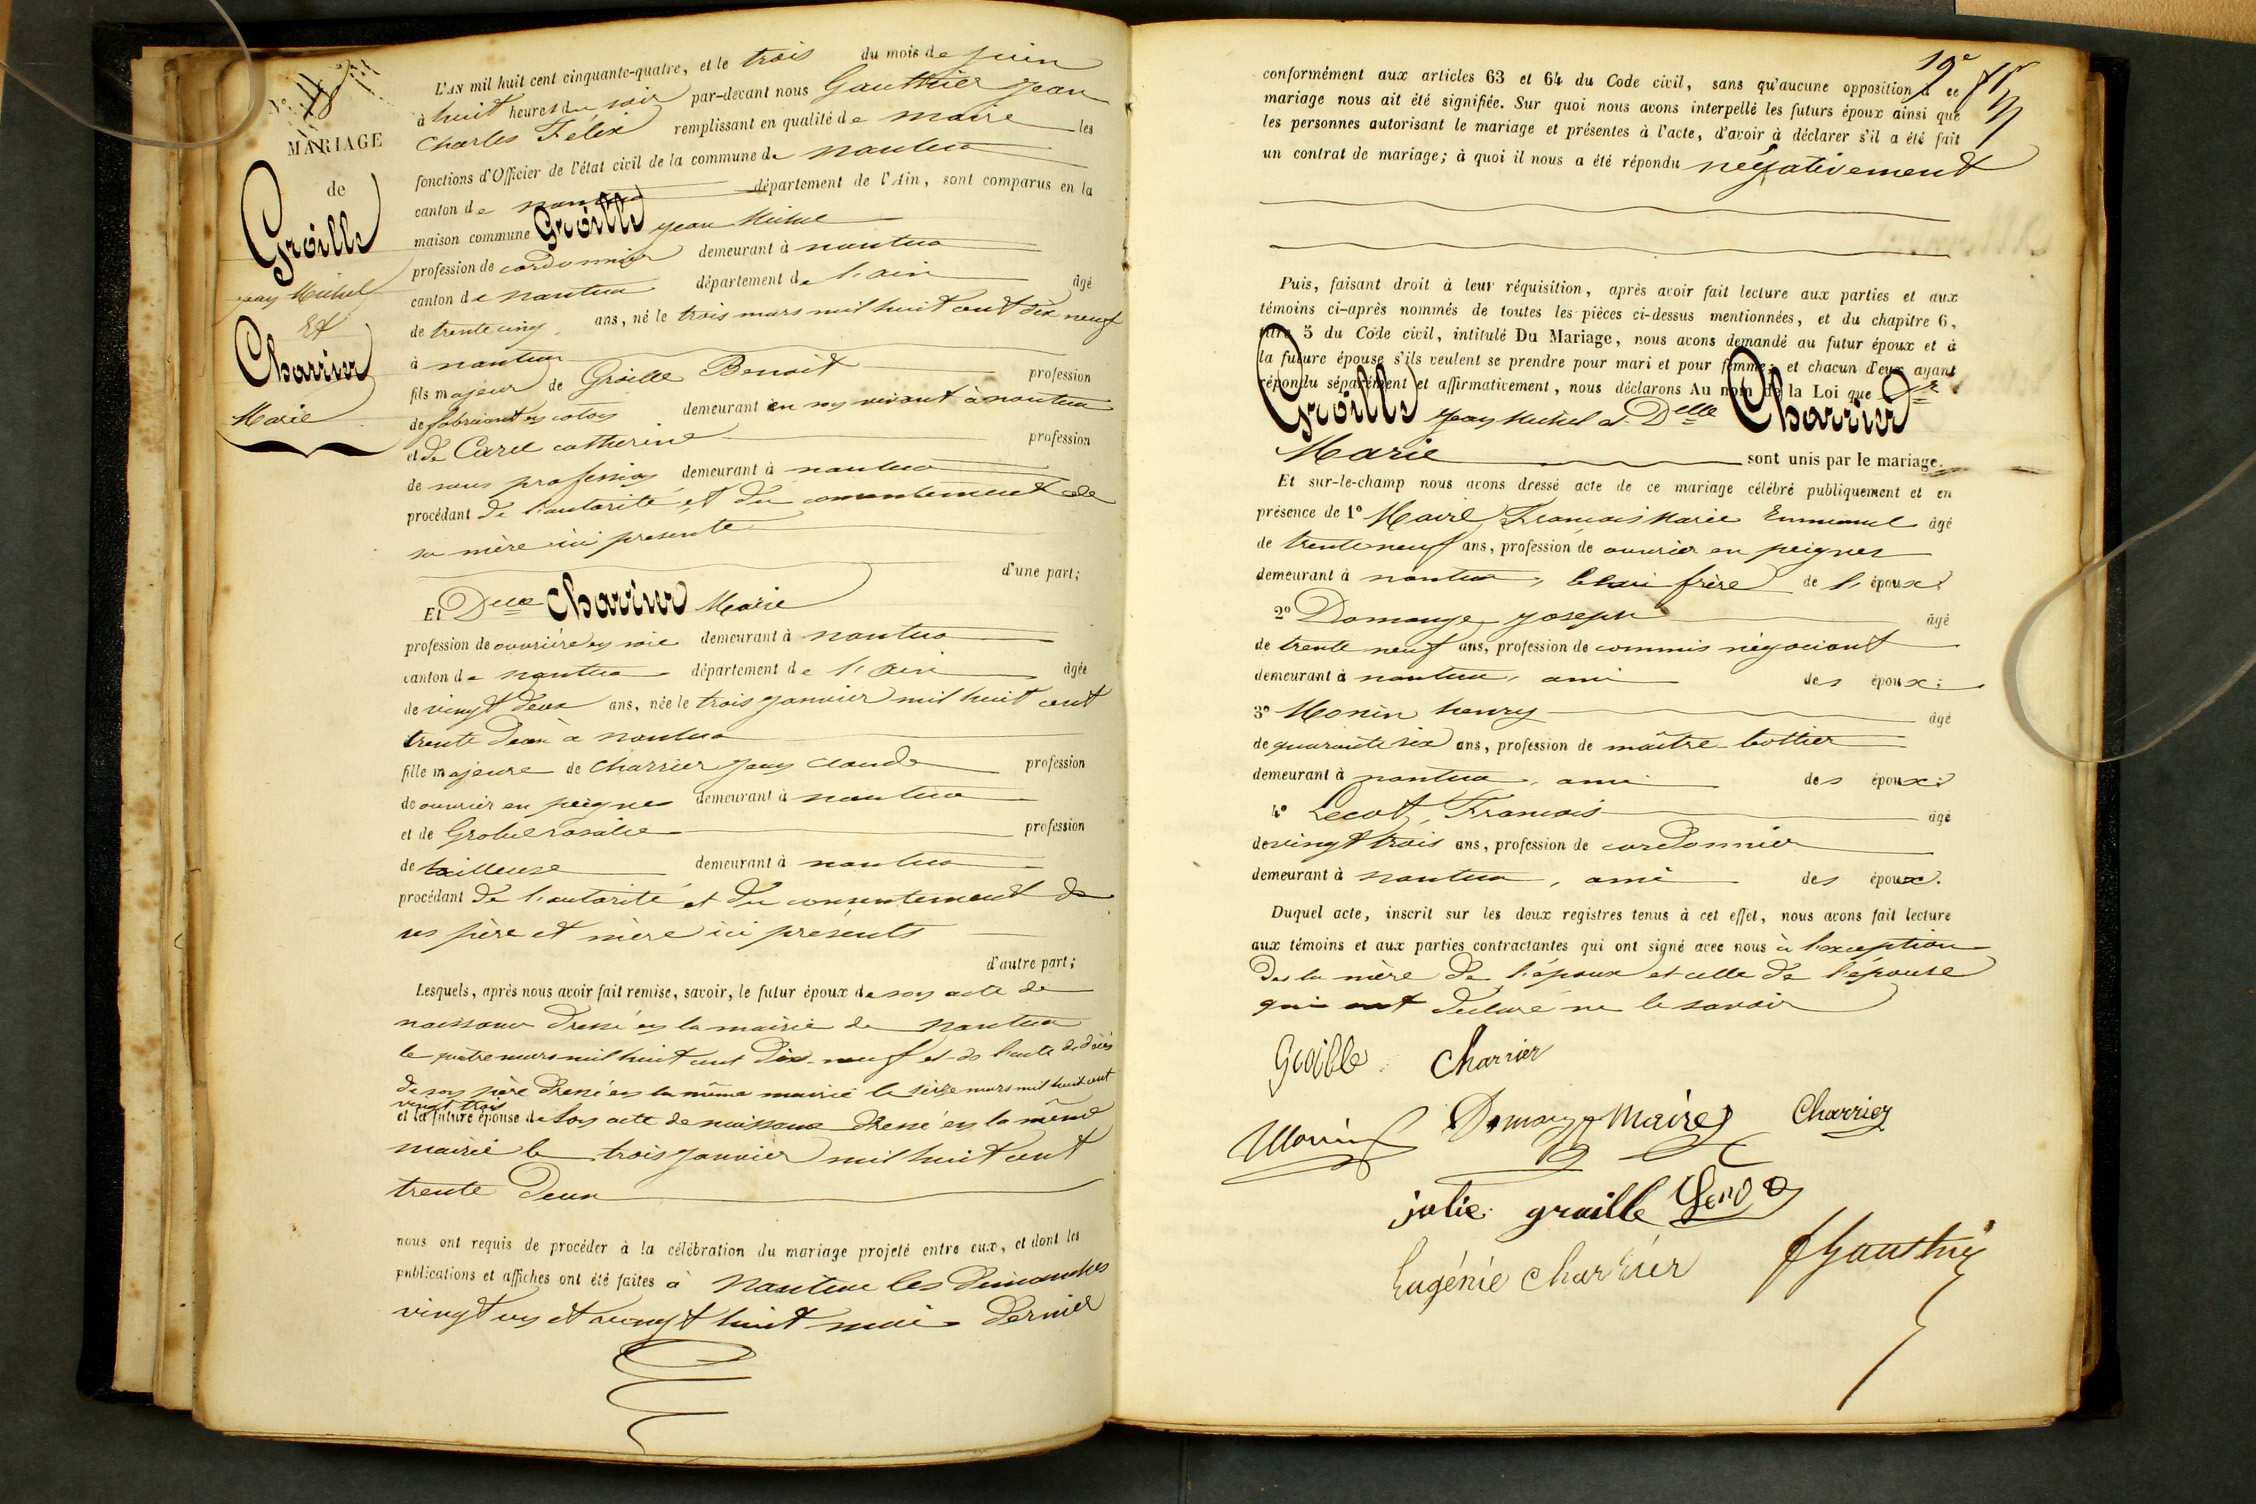 N° 18
MARIAGE
de
Groille
Jean Michel
Et
Charrier
Marie
L'AN mil huit cent cinquante-quatre, et le trois du mois de juin
à huit heures du soir par-devant nous Gauthier Jean
Charles Félix remplissant en qualité de maire les
fonctions d'Officier de l'état civil de la commune de nantua
canton de nantua département de l'Ain, sont comparus en la
maison commune Groille Jean Michel
profession de cordonnier demeurant à nantua
canton de nantua département de l'ain âgé
de trente cinq ans, né le trois mars mil huit cent dix neuf
à nantua
fils majeur de Groille Benoit profession
de fabricant en coton demeurant en son vivant à nantua
et de Carel catherine profession
de sans profession demeurant à nantua
procédant de l'autorité et du consentement de
sa mère ici présente
d'une part;
Et Delle Charrier Marie
profession de ouvrière en soie demeurant à nantua
canton de nantua département de l'ain âgée
de vingt deux ans, née le trois janvier mil huit cent
trente deux à nantua
fille majeure de Charrier Jean Claude profession
de ouvrier en peignes demeurant à nantua
et de rosalie profession
de tailleuse demeurant à nantua
procédant de l'autorité et du consentement de
ses père et mère ici présents
d'autre part;
Lesquels, après nous avoir fait remise, savoir, le futur époux de son acte de
naissance dressé en la mairie de nantua
le quatre mars mil huit cent dix-neuf et de l'acte de décès
de son père dressé en la même mairie le seize mars mil huit cent
vingt trois
et la future épouse de son acte de naissance dressé en la même
mairie le trois janvier mil huit cent
trente deux
nous ont requis de procéder à la célébration du mariage projeté entre eux, et dont les
publications et affiches ont été faites à nantua les dimanches
vingt un et vingt huit mai dernier
19e
conformément aux articles 63 et 64 du Code civil, sans qu'aucune opposition à ce
mariage nous ait été signifiée. Sur quoi nous avons interpellé les futurs époux ainsi que
les personnes autorisant le mariage et présentes à l'acte, d'avoir à déclarer s'il a été fait
un contrat de mariage; à quoi il nous a été répondu négativement
Puis, faisant droit à leur réquisition, après avoir fait lecture aux parties et aux
témoins ci-après nommés de toutes les pièces ci-dessus mentionnées, et du chapitre 6,
titre 5 du Code civil, intitulé Du Mariage, nous avons demandé au futur époux et à
la future épouse s'ils veulent se prendre pour mari et pour femme; et chacun d'eux ayant
répondu séparément et affirmativement, nous déclarons Au nom de la Loi que Sr
Groille Jean Michel et Delle Charrier
Marie sont unis par le mariage.
Et sur-le-champ nous avons dressé acte de ce mariage célébré publiquement et en
présence de 1° Maire, Francois Marie Emmanuel âgé
de trente neuf ans, profession de ouvrier en peignes
demeurant à nantua, beau frère de l'époux:
2° Domange Joseph âgé
de trente neuf ans, profession de commis négociant
demeurant à nantua, ami des époux:
3° Monin henry âgé
de quarante six ans, profession de maître bottier
demeurant à nantua, ami des époux:
4° Lecot, Francois âgé
de vingt trois ans, profession de cordonnier
demeurant à nantua, ami des époux.
Duquel acte, inscrit sur les deux registres tenus à cet effet, nous avons fait lecture
aux témoins et aux parties contractantes qui ont signé avec nous à l'exception
de la mère de l'époux et celle de l'épouse
qui ont déclaré ne le savoir
Groille Charrier
Monin Domange Maire Charrier
julie groille
Eugénie Charrier Gauthier